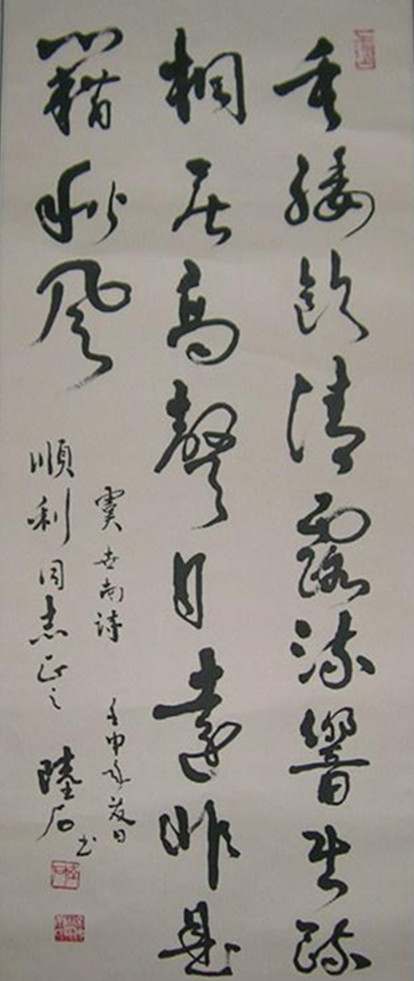 垂緌飲清露流響出疏
桐居高聲自遠非是
籍秋風
虞世南詩 壬申年夏日
順利同志正之 陸石書